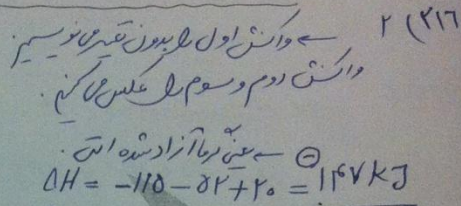 ۲۱۶) ۲ ← واکنش اول را بدون تغییر می نویسیم
واکنش دوم و سوم را عکس می کنیم.
⊖ ← یعنی گرما آزاد شده است.
ΔH = -115 - 52 + 20 = 147 kJ